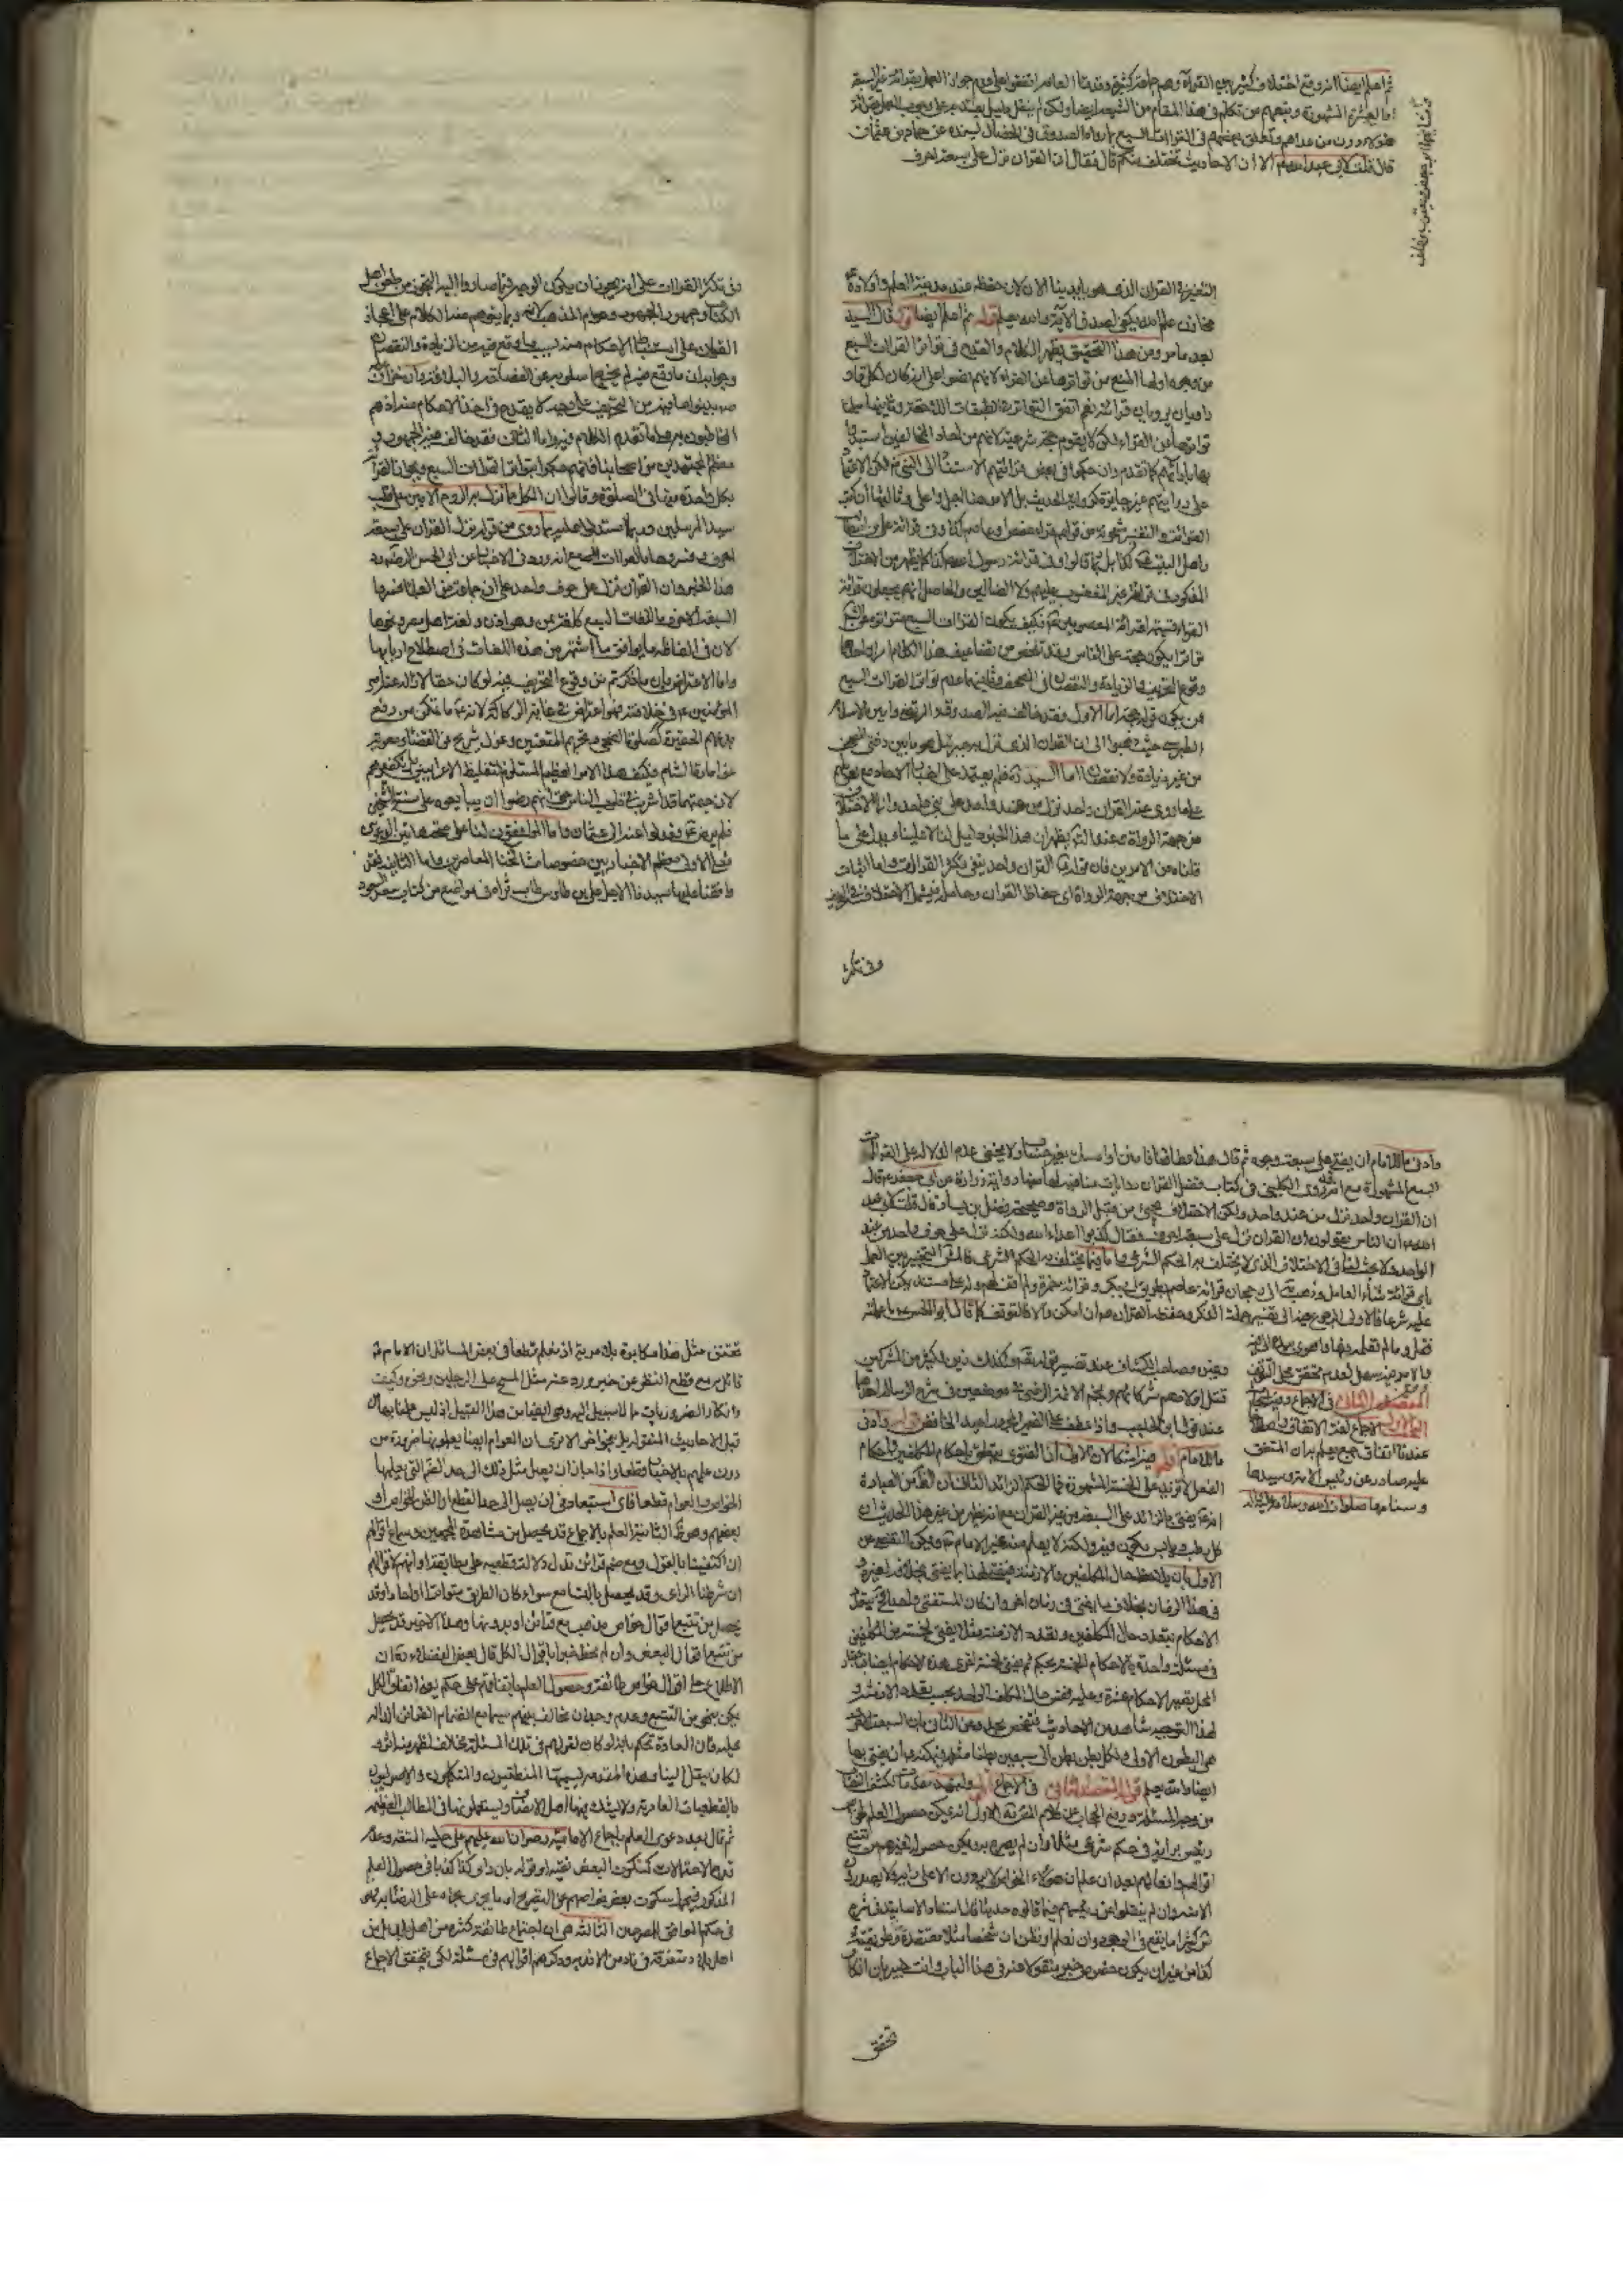 ثم اعلم ايضا انه وقع اختلاف كثير بين القراء وهم جماعة كثيرة وقدماء العامة اتفقوا على عدم جواز العمل بقرائة غير السبعة
او العشرة المشهورة وتبعهم من تكلم في هذا المقام من الشيعة ايضا ولكن لم ينقل دليل يعتد به على وجوب العمل بقرائة
هؤلاء دون من عداهم وتعلق بعضهم في القراءات السبع بما رواه الصدوق في الخصال بسنده عن حماد بن عثمان
قال قلت لابي عبد الله ان الاحاديث تختلف منكم قال فقال ان القران نزل على سبعة احرف
القران الذي هو بايدينا الان كان حفظه عند مدينة العلم واولاده
ثم اعلم ايضا قال السيد
بعد ما مر ومن هذا التحقيق يظهر الكلام والقدح في تواتر القراءات السبع
من وجوه اولها المنع من تواترها عن القراء لانهم نصوا على انه كان لكل قار
راويان يرويان قرائته نعم اتفق التواتر في الطبقات اللاحقة وثانيها سلمنا
تواترها عن القراء لكن لا يقوم حجة شرعية لانهم من احاد المخالفين استبدوا
بها بارائهم كما تقدم وان حكوا في بعض قرائتهم الاستناد الى النبي لكن الاعتماد
على رواياتهم غير جايزة كرواية الحديث بل الامر هنا اجل واعلى وثالثها ان كتب
القرائة والتفسير مشحونة من قولهم قرء حفص وعاصم كذا وفي قرائة علي بن ابيطالب
واهل البيت كذا بل ربما قالوا وفي قرائة رسول الله كذا كما يظهر من الاختلاف
المذكور في قرائة غير المغضوب عليهم ولا الضالين والحاصل انهم يجعلون قرائة
القراء قسيمة لقرائة المعصومين فكيف يكون القراءات السبع متواترة
تواترا يكون حجة على الناس وقد تلخص من تضاعيف هذا الكلام امران احدهما
وقوع التحريف والزيادة والنقصان في المصحف وثانيهما عدم تواتر القراءات السبع
من يكون قوله حجة اما الاول فقد خالف فيه الصدوق والمرتضى وامين الاسلام
الطبرسي حيث ذهبوا الى ان القران الذي نزل به جبرئيل هو ما بين دفتي المصحف
من غير زيادة ولا نقصان اما السيد فلم يعتمد على اخبار الاحاد مع تعويلهم
على ما روي عنه القران واحد نزل من عند واحد على نبي واحد وانما الاختلاف
من جهة الرواة وعند التامل يظهر ان هذا الخبر دليل لنا لا علينا ويدل على ما
قلناه من الامرين فان قوله القران واحد ينفي تكثر القراءات واما اثبات
الاختلاف من جهة الرواة اي حفاظ القران وحامليه فيشمل الاختلاف في التحريف
وفي تكثر
وفي تكثر القراءات على انه يجوز ان يكون الوجه فيما صاروا اليه التحرز من طعن اهل
الكتاب وجمهور الجمهور وعوام المذهب لانه ربما يتوهم منه الكلام على اعجاز
القران وعلى استنباط الاحكام منه بسبب ما وقع فيه من الزيادة والنقصان
وجوابه ان ما وقع فيه لم يخرج اسلوبه عن الفصاحة والبلاغة
المخاطبون به واما ما تقدم الكلام فيه واما الثاني فقد خالف فيه الجمهور و
معظم المجتهدين من اصحابنا فانهم حكموا بتواتر القراءات السبع وبجواز القرائة
بكل واحدة منها في الصلوة وقالوا ان الكل مما نزل به الروح الامين على قلب
سيد المرسلين وربما استدلوا عليه بما روي من قوله نزل القران على سبعة
احرف وفسروها بالقراءات السبع مع انه ورد في الاخبار عن ابي الحسن رد
هذا الخبر وان القران نزل على حرف واحد على ان جماعة من العلماء فسروا
السبعة الاحرف باللغات السبع كلغة يمن وهوازن ولغة اهل مصر ونحوها
لان في الفاظه ما يوافق ما اشتهر من هذه اللغات في اصطلاح اربابها
واما الاعتراض بان ما ذكرتم من وقوع التحريف فيه لو كان حقا لازاله عنه امير
المؤمنين في خلافته فهو اعتراض في غاية الركاكة لانه ما تمكن من رفع
بدعهم الحقيرة كصلوة الضحى وتحريم المتعتين وعزل شريح عن القضاء ومعوية
عن امارة الشام فكيف هذا الامر العظيم المستلزم لتغليط الاعرابيين بل تكفيرهم
لان حبهما قد اشرب في قلوب الناس حتى انهم رضوا ان يبايعوه على سنة الشيخين
فلم يرض فعدلوا عنه الى عثمان واما الموافقون لنا على صحة هاتين الدعويين
فعلى الاولى معظم الاخباريين خصوصا مشايخنا المعاصرين واما الثانية فقد
وافقنا عليها سيدنا الاجل علي بن طاوس طاب ثراه في مواضع من كتاب سعد السعود
وادنى ما للامام ان يفتي على سبعة وجوه ثم قال هذا عطاؤنا فامنن او امسك بغير حساب ولا يخفى عدم الدلالة على القراءات
السبع المشهورة مع انه روى الكليني في كتاب فضل القران روايات منافية لها منها رواية زرارة عن ابي جعفر قال
ان القران واحد نزل من عند واحد ولكن الاختلاف يجيئ من قبل الرواة وصحيحة فضيل بن يسار قال قلت لابي عبد
الله ان الناس يقولون ان القران نزل على سبعة احرف فقال كذبوا اعداء الله ولكنه نزل على حرف واحد من عند
الواحد ولا بحث لنا في الاختلاف الذي لا يختلف به الحكم الشرعي واما فيما يختلف به الحكم الشرعي فالمشهور التخيير بين العمل
باي قرائة شاء العامل وذهب الى رجحان قرائة عاصم بطريق ابي بكر وقرائة حمزة ولم اقف لهم ولد على مستند يمكن الاعتماد
عليه شرعا فالاولى الرجوع فيها الى تفسير حملة الذكر وحفظة القران ان امكن والا فالتوقف كما قال ابو الحسن ما علمته
المقصد الثاني في الاجماع وفيه
الاول الاجماع لغة الاتفاق واصطلاحا
عندنا اتفاق جمع يعلم به ان المتفق
عليه صادر عن رئيس الامة وسيدها
وسنامها صلوات الله وسلامه عليه
وغيره وصاحب الكشاف عند تفسير قوله وكذلك زين لكثير من المشركين
قتل اولادهم شركائهم ونجم الائمة الرضي في موضعين في شرح الرسالة احدهما
عند قول ابن الحاجب واذا عطف على الضمير المجرور اعيد الخافض قوله وادنى
ما للامام اقول فيه اشكالان الاول ان الفتوى يتعلق باحكام المكلفين واحكام
الفعل لا تزيد على الخمسة المشهورة فما الحكم الزائد الثاني ان الظاهر من العبارة
انه يفتي بالزائد على السبعة من غير القران مع انه يظهر من غير هذا الحديث ان
كل رطب ويابس يكون فيه ولكنه لا يعلم منه غير الامام ويمكن التفصي عن
الاول بان يلاحظ حال المكلفين والازمنة فيفتي لهذا بما يفتي بخلافه لغيره
في هذا الزمان بخلاف ما يفتي في زمان اخر وان كان المستفتي واحدا
الاحكام بتعدد حال المكلفين وتعدد الازمنة مثلا يفتي لخمسة من المكلفين
في مسئلة واحدة بالاحكام الخمسة بحكم ثم يفتي لخمسة اخرى هذه الاحكام ايضا
لهذا التوجيه شاهد من الاحاديث وعن الثاني بان السبعة
هي البطون الاولى ولكل بطن بطن الى سبعين بطنا فيمكنه ان يفتي بها
ايضا والله يعلم قوله المقصد الثاني في الاجماع اقول ولنمهد مقدمات لكشف النقاب
من وجه المسئلة ورفع الحجاب عن كلام الفرقة الاولى انه يمكن حصول العلم
اقوالهم وافعالهم بعد ان علم ان هؤلاء الخواص لا يروون الا عن رايه ولا يصدرون
الا عنه وان لم ينقلوا عن رئيسهم فيما قالوه حديثا
كثيرا ما يقع في الوجود ان نعلم او نظن ان شخصا مثلا معتقده وطريقته
كذا من غير ان يكون خصوص خبر منقولا عنه في هذا الباب وانت خبير بان انكار
تحقق
تحقق مثل هذا مكابرة بلا مرية اذ نعلم قطعا في بعض المسائل ان الامام
قائل به مع قطع النظر عن خبر ورد عنه مثل المسح على الرجلين ونحوه وكيف
وانكار الضروريات ما لا سبيل اليه وهي ايضا من هذا القبيل اذ ليس علمنا بها من
قبل الاحاديث المنقولة بل بنحو اخر الا ترى ان العوام ايضا يعلمونها ضرورة من
دون علمهم بالاخبار قطعا واذا جاز ان يصل مثل ذلك الى حد الضرورة التي يعلمها
الخواص والعوام قطعا فاي استبعاد في ان يصل الى حد القطع او الظن للخواص او
بعضهم الثانية العلم بالاجماع قد يحصل من مشاهدة المجمعين وسماع اقوالهم
ان اكتفينا بالقول ومع ضم قرائن تدل دلالة قطعية على مطابقة ارائهم لاقوالهم
ان شرطنا الراي وقد يحصل بالتسامع سواء كان الطريق متواترا او احادا وقد
يحصل من تتبع اقوال خواص مذهب مع قرائن او بدونها وهذا الاخير قد يحصل
من تتبع اقوال البعض وان لم يحط خبرا باقوال الكل قال بعض الفضلاء ان
الاطلاع على اقوال خواص طائفة وحصول العلم باتفاقهم على حكم يعرف اتفاق الكل
يمكن بنحو من التتبع وعدم وجدان مخالف بينهم سيما مع انضمام القرائن الدالة
عليه فان العادة تحكم بانه لو كان لغيرهم في تلك المسئلة خلاف لظهر منه اثر و
لكان ينقل الينا وهذه المقدمة يسميها المنطقيون والمتكلمون والاصوليون
بالقطعيات العادية ولا يشك فيها اهل الانصاف ويستعملونها في المطالب العظيمة
ثم قال بعد دعوى العلم باجماع الامامية رضوان الله عليهم على حلية المتعة وعدم
قدح الاحتمالات كسكوت البعض تقية او قوله بان راي كذا كذبا في حصول العلم
المذكور فيها سكوت بعض خواصهم عن التصريح او ما يجري مجراه على الرضا به فهو
في حكم الموافق المصرح الثالثة هي ان اجتماع طائفة كثيرة من اهل بلد او من
اهل بلاد متفرقة في ناد من الاندية وذكرهم اقوالهم في مسئلة لكي يتحقق الاجماع